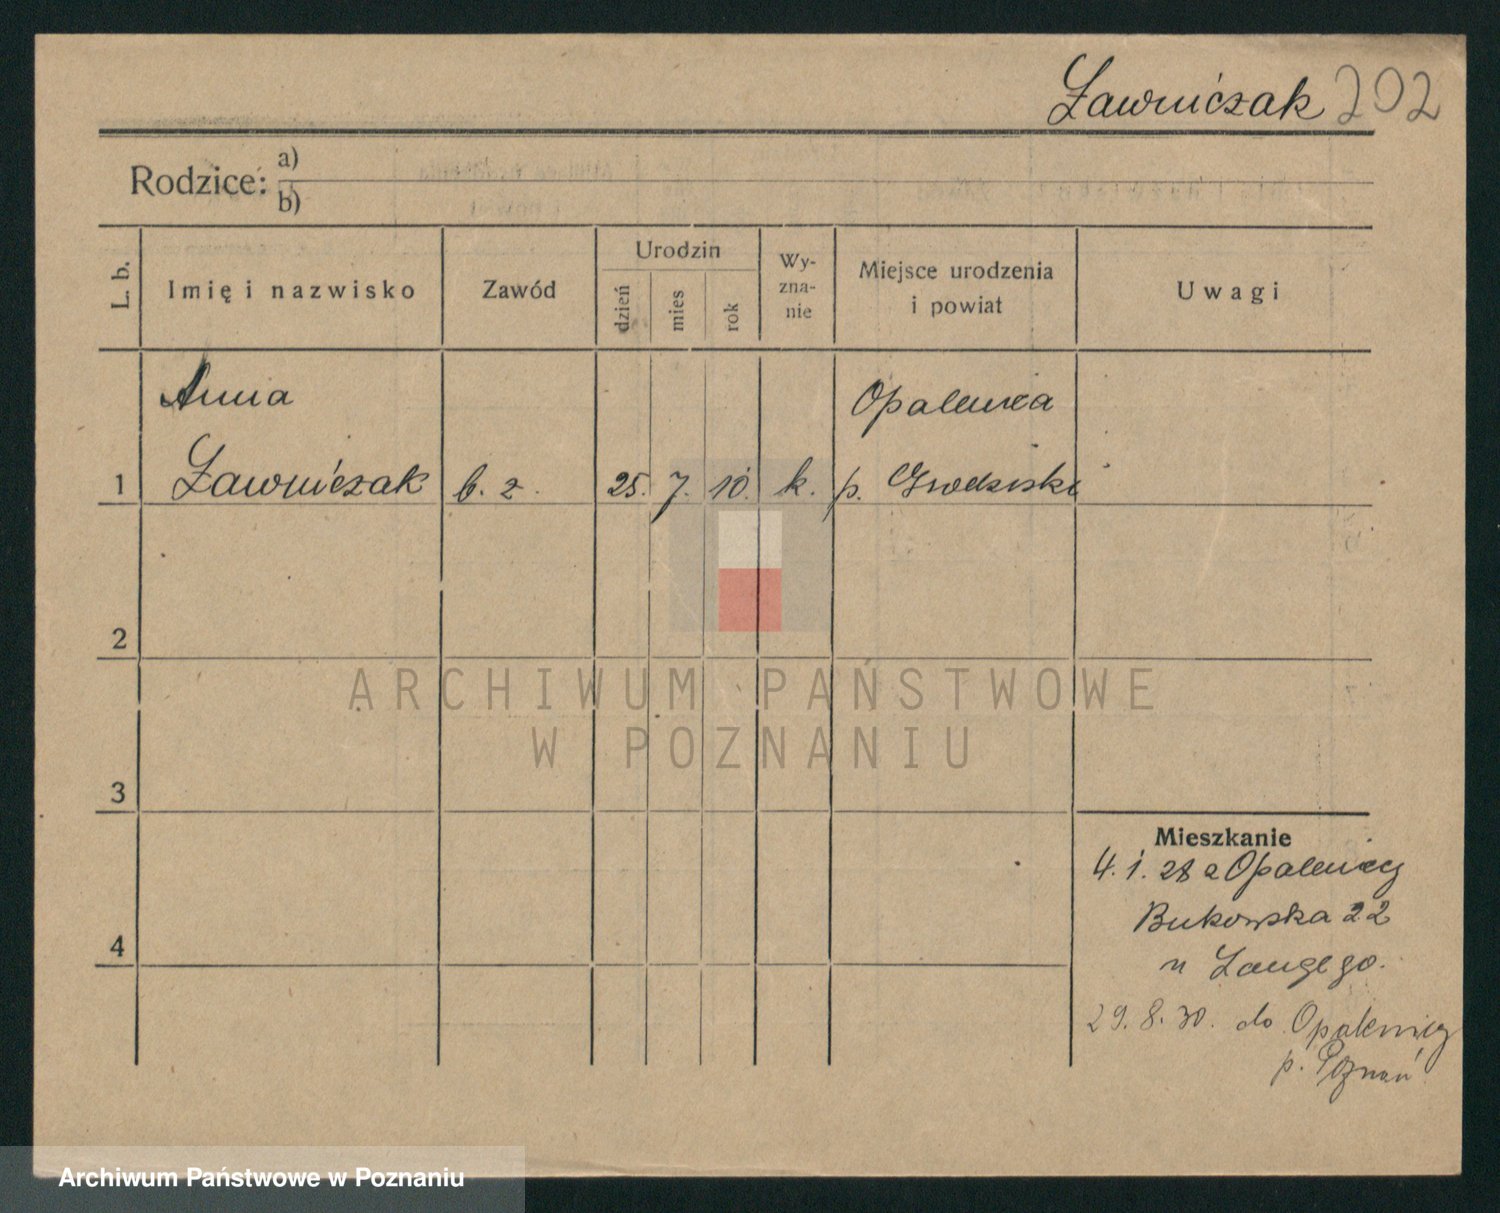 Ławniczak 202
Rodzice: a)
b)
L. b.
Imię i nazwisko
Zawód
Urodzin
dzień
mies
rok
Wy-
zna-
nie
Miejsce urodzenia
i powiat
Uwagi
Anna
Opalenica
1 Ławniczak b. z. 25. 7. 10. k. p. Grodziski
2
3
4
Mieszkanie
4. 1. 28 z Opalenicy
Bukowska 22
u Langego.
29. 8. 30. do Opalenicy
p. Poznań
ARCHIWUM PAŃSTWOWE
W POZNANIU
Archiwum Państwowe w Poznaniu